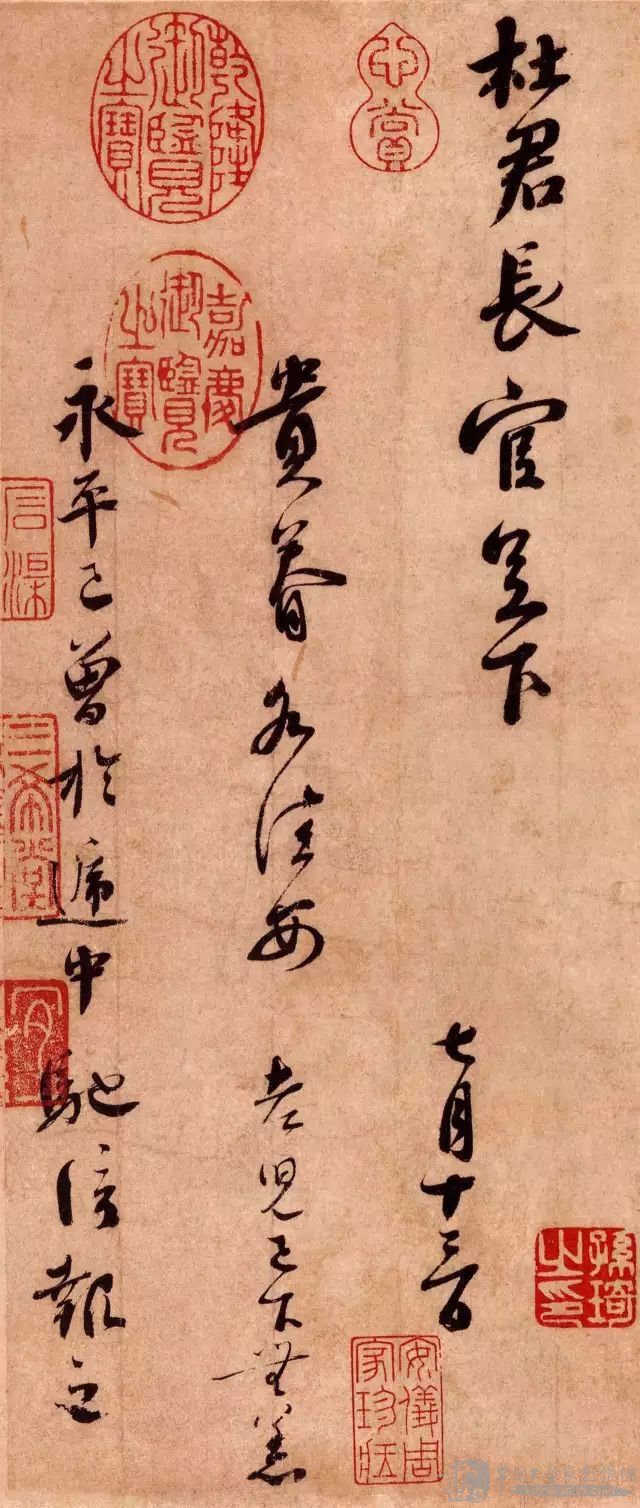 杜君長官足下
七月十三日
貴眷各佳安 老兒已下無恙
永平已曾於遞中馳信報之
心賞
乾隆御覽之寶
嘉慶御覽之寶
安儀周家珍藏
三希堂